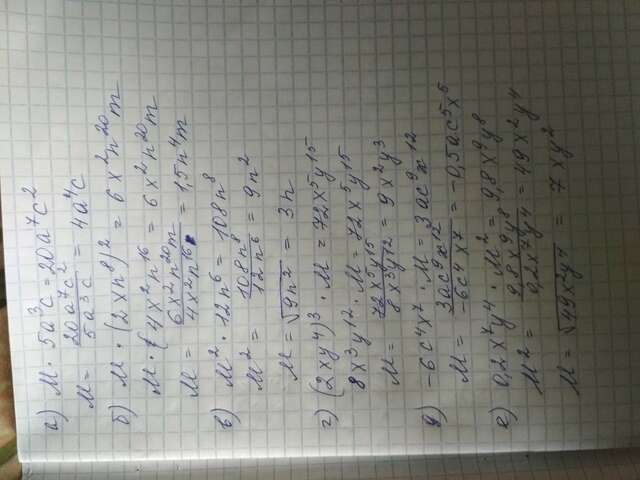 а) M · 5a³c = 20a⁷c²
M = 20a⁷c² / 5a³c = 4a⁴c
б) M · (2xn⁸)² = 6x²n²⁰m
M · (4x²n¹⁶ = 6x²n²⁰m
M = 6x²n²⁰m / 4x²n¹⁶ = 1,5n⁴m
в) M² · 12n⁶ = 108n⁸
M² = 108n⁸ / 12n⁶ = 9n²
M = √9n² = 3n
г) (2xy⁴)³ · M = 72x⁵y¹⁵
8x³y¹² · M = 72x⁵y¹⁵
M = 72x⁵y¹⁵ / 8x³y¹² = 9x²y³
д) -6c⁴x⁷ · M = 3ac⁹x¹²
M = 3ac⁹x¹² / -6c⁴x⁷ = -0,5ac⁵x⁵
е) 0,2x⁷y⁴ · M² = 9,8x⁹y⁸
M² = 9,8x⁹y⁸ / 0,2x⁷y⁴ = 49x²y⁴
M = √49x²y⁴ = 7xy²